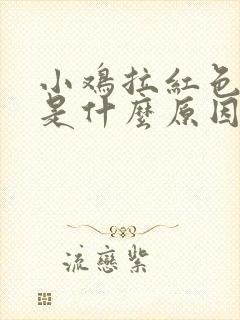 小鸡拉红色
是什麼原因
流戀紫